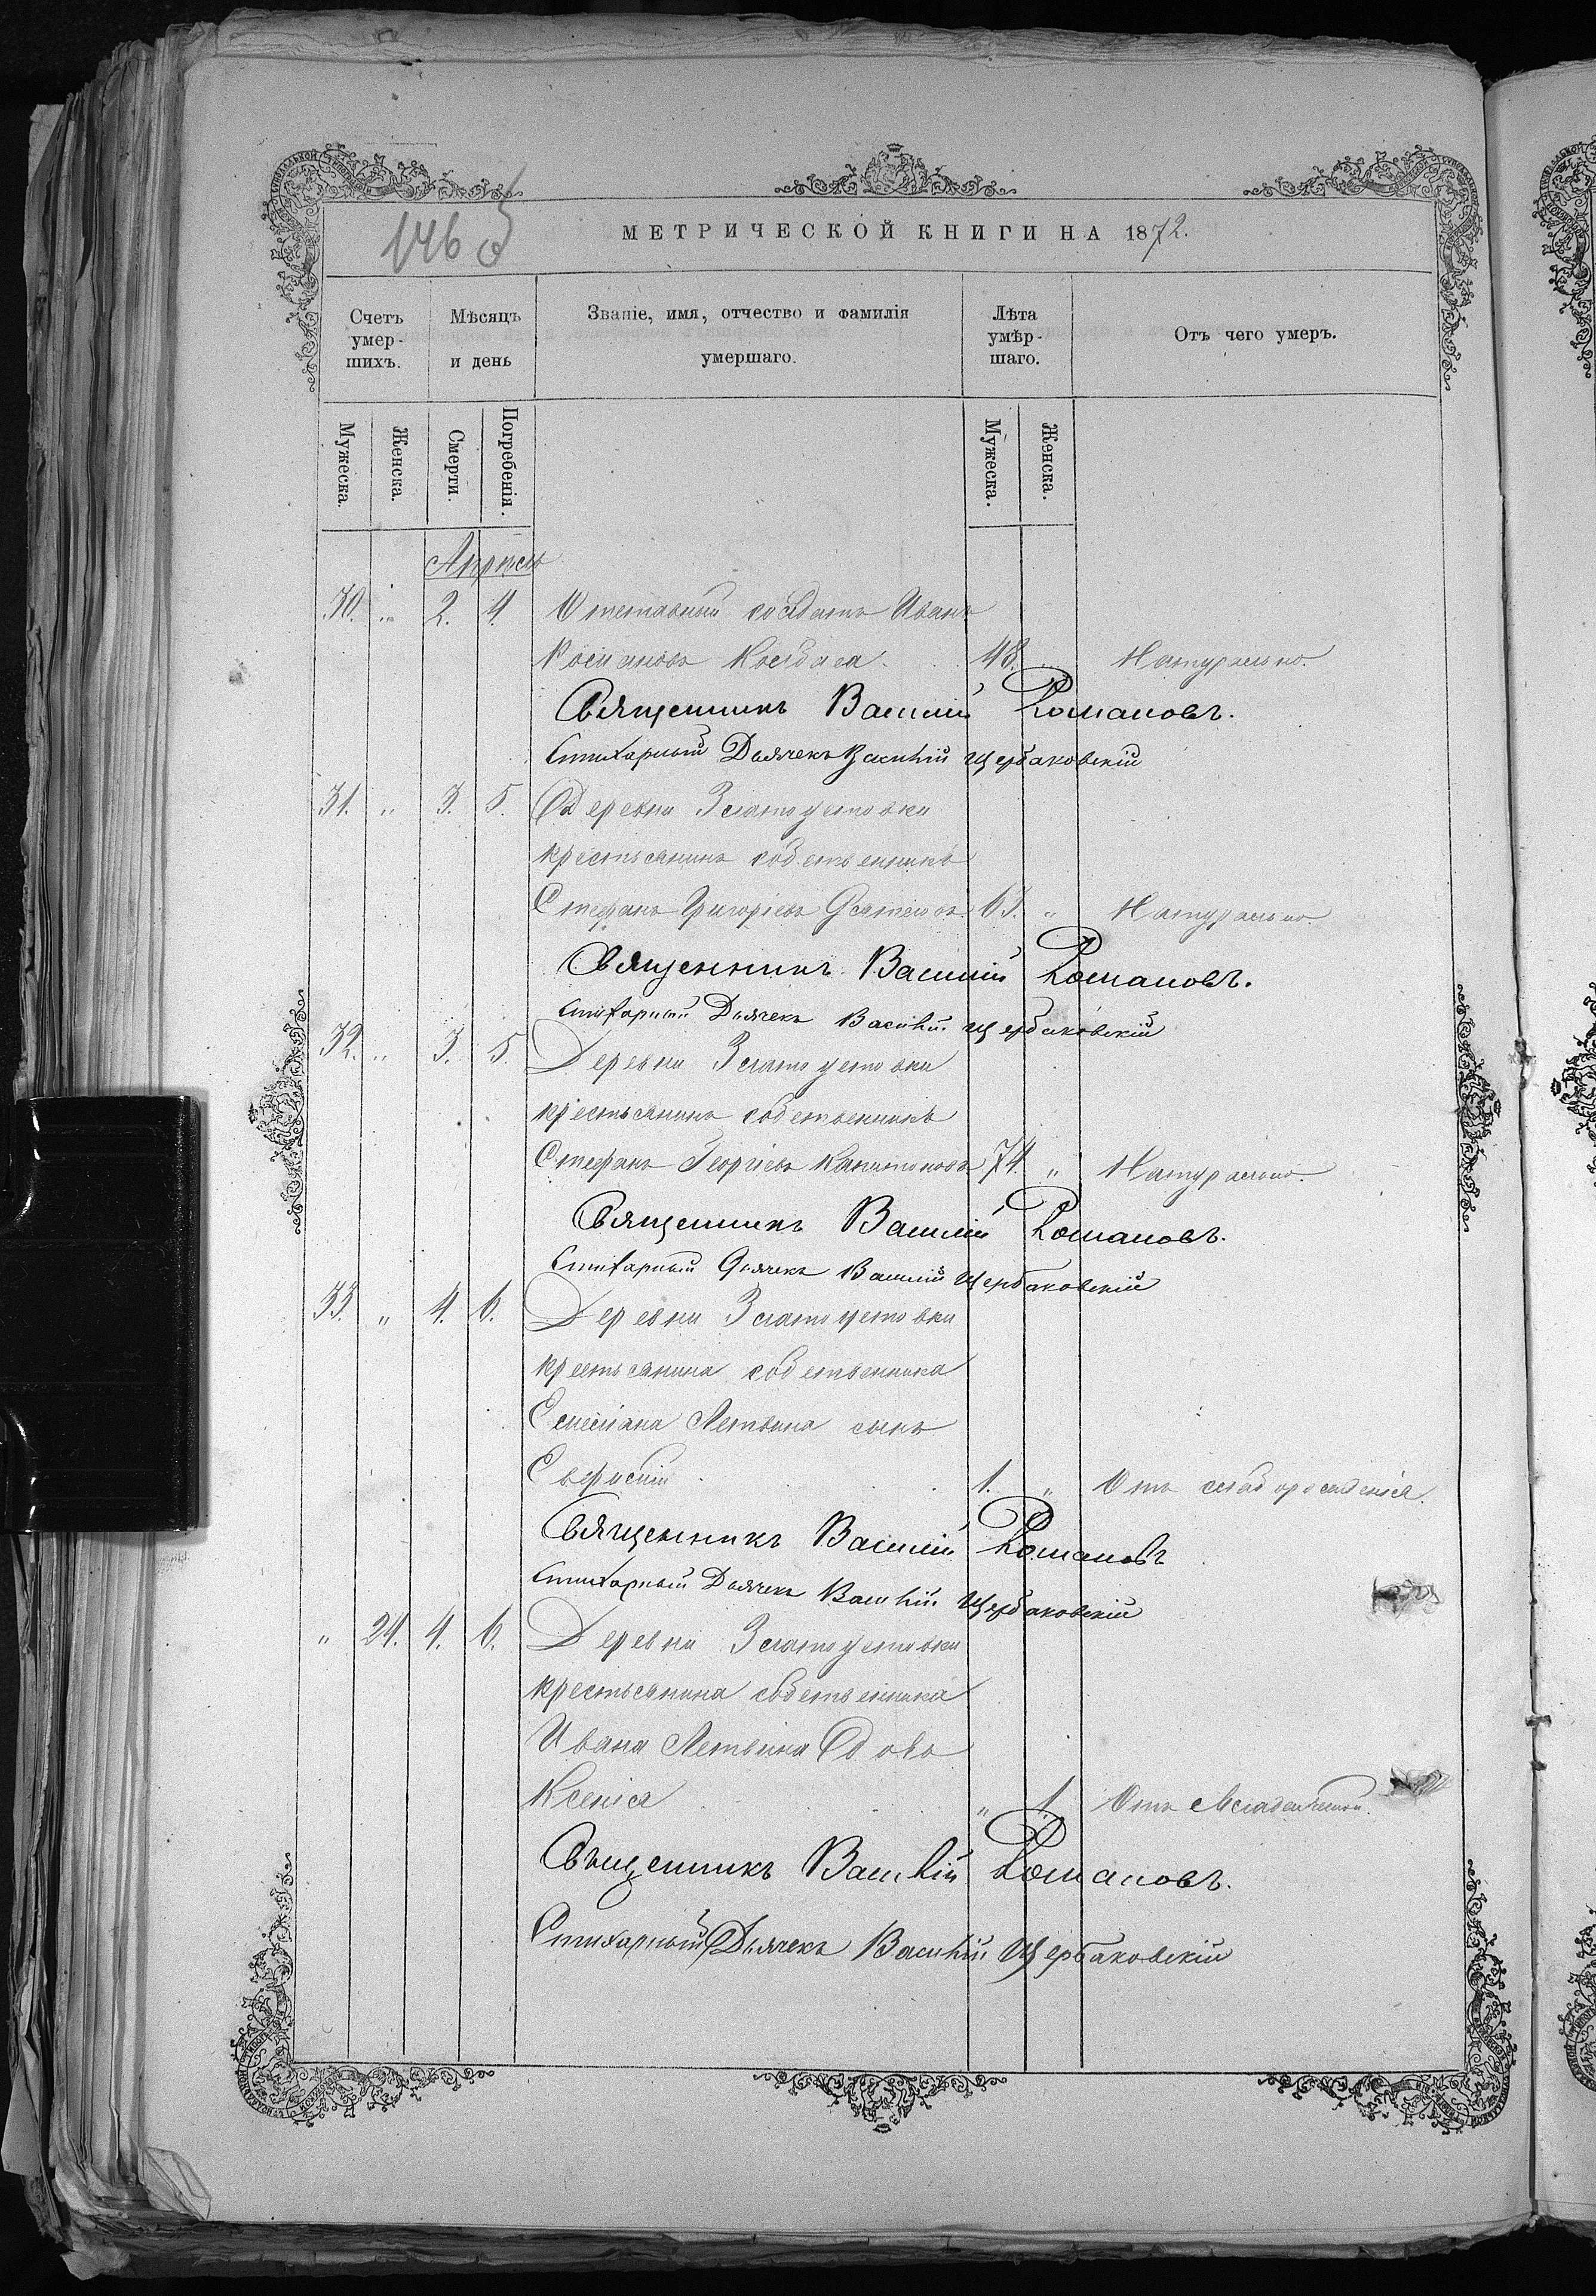 146 об
МЕТРИЧЕСКОЙ КНИГИ НА 1872.
Счетъ умер-шихъ. Мѣсяцъ и день Званіе, имя, отчество и фамилія умершаго. Лѣта умѣр-шаго. Отъ чего умеръ.
Мужеска. Женска. Смерти. Погребенія. Мужеска. Женска.
Апрѣль
30. " 2. 4. Отставный солдатъ Иванъ
Колбаса. 48. " Натурально.
Священникъ Василій Романовъ.
Стихарный Дьячекъ Василій Щербаковскій
31. " 3. 5. Деревни Златоустовки
крестьянинъ собственникъ
Стефанъ Григорьевъ 63. " Натурально
Священникъ Василій Романовъ.
Стихарный Дьячекъ Василій Щербаковскій
32. " 3. 5. Деревни Златоустовки
крестьянинъ собственникъ
Стефанъ Георгіевъ Капитоновъ 74. " Натурально.
Священникъ Василій Романовъ.
Стихарный Дьячекъ Василій Щербаковскій
33. " 4. 6. Деревни Златоустовки
крестьянина собственника
Емеліана Летвина сынъ
1. " Отъ слаборожденія.
Священникъ Василій Романовъ
Стихарный Дьячекъ Василій Щербаковскій
" 24. 4. 6. Деревни Златоустовки
крестьянина собственника
Ивана Летвина дочь
Ксенія " 1 Отъ младенческой.
Священникъ Василій Романовъ.
Стихарный Дьячекъ Василій Щербаковскій